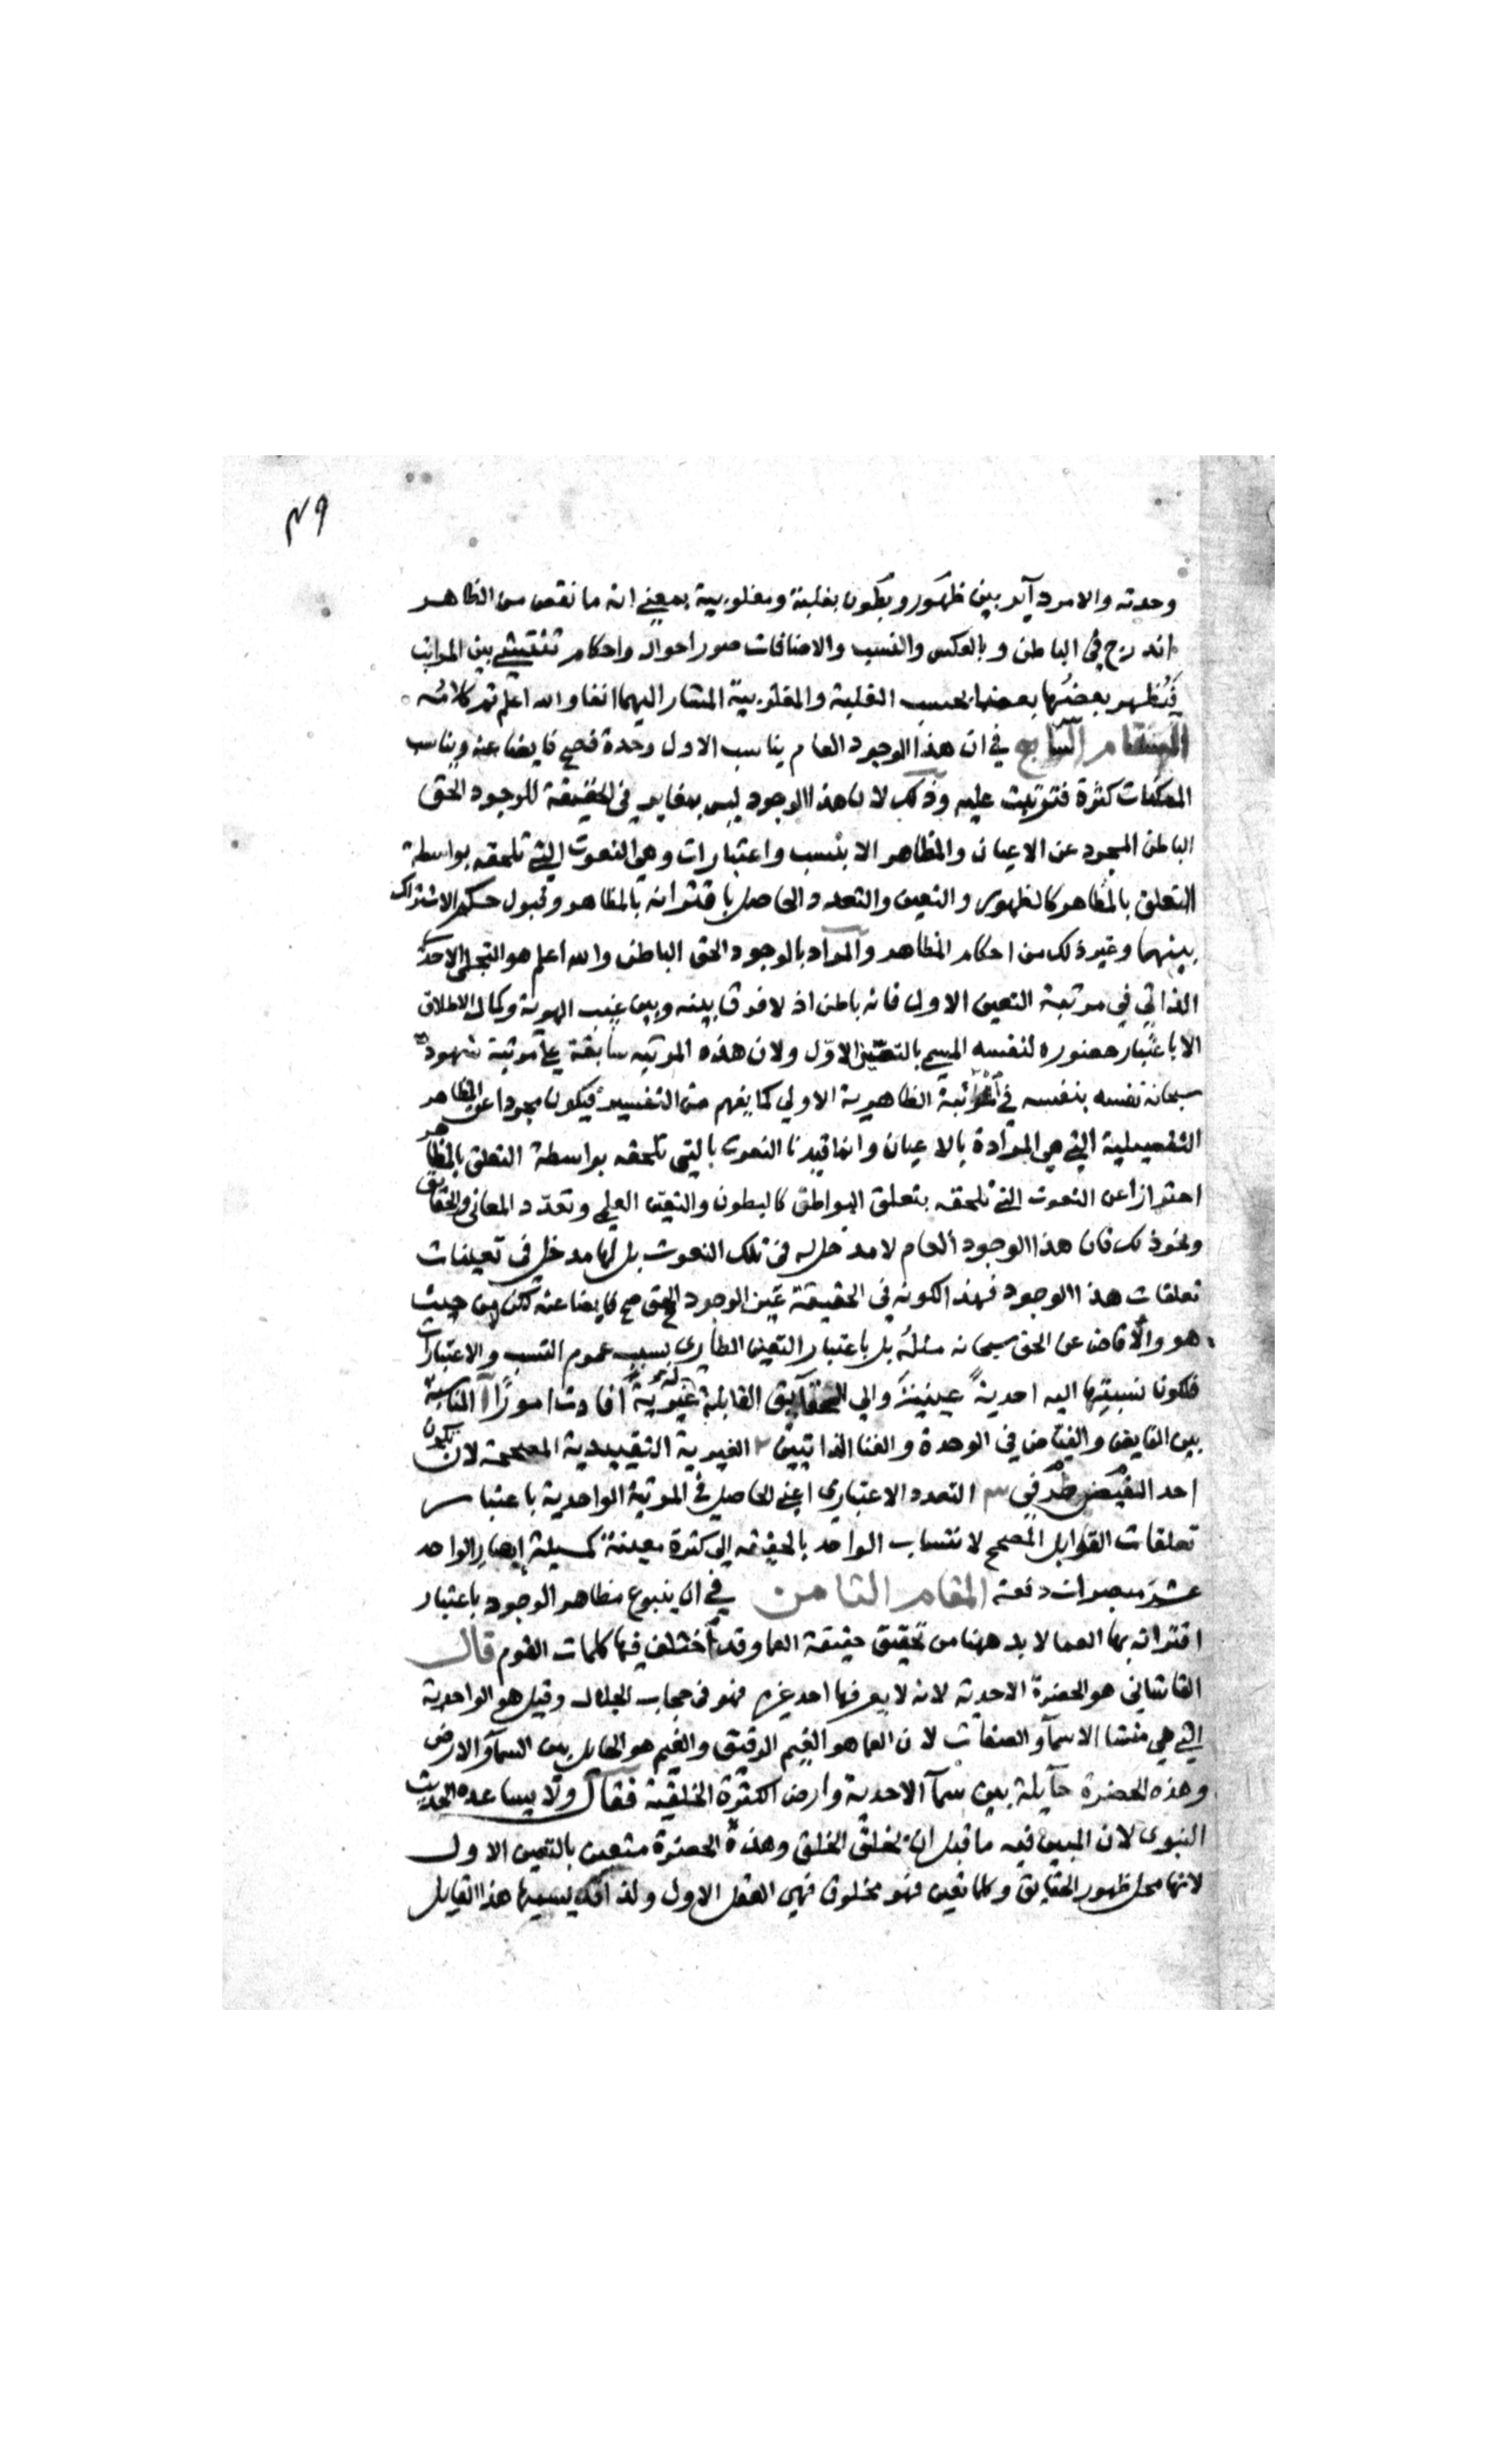 ٤٩
وحدته والامر دآير بين ظهور وبطون بغلبة ومغلوبية بمعني انه ما نقص من الظاهر
اندرج في الباطن وبالعكس والنسب والاضافات صور احوال واحكام تنتشي بين المراتب
فيظهر بعضها بعضا بحسب الغلبة والمغلوبية المشار اليهما انفا والله اعلم تم كلامه
المقام السابع في ان هذا الوجود العام يناسب الاول وحدة فصح فايضا عنه ويناسب
الممكنات كثرة فترتبت عليه وذلك لان هذا الوجود ليس بمغاير في الحقيقة للوجود الحق
الباطن المجرد عن الاعيان والمظاهر الا بنسب واعتبارات وهي النعوت التي تلحقه بواسطة
التعلق بالمظاهر كالظهور والتعين والتعدد الحاصل باقترانه بالمظاهر وقبول حكم الاشتراك
بينهما وغير ذلك من احكام المظاهر والمراد بالوجود الحق الباطن والله اعلم هو التجلي الاحدي
الذاتي في مرتبة التعين الاول فانه باطن اذ لا فرق بينه وبين غيب الهوية وكمال الاطلاق
الا باعتبار حضوره لنفسه المسمي بالتعين الاول ولان هذه المرتبه سابقة علي مرتبة شهوده
سبحانه نفسه بنفسه في المرتبة الظاهرية الاولي كما يفهم من التفسير فيكون مجردا عن المظاهر
التفصيلية التي هي المرادة بالاعيان وانما قيدنا النعوت بالتي تلحقه بواسطة التعلق بالمظاهر
احترازا عن النعوت التي تلحقه بتعلق البواطن كالبطون والتعين العلمي وتعدد المعاني والحقايق
ونحو ذلك فان هذا الوجود العام لا مدخل له في تلك النعوت بل لها مدخل في تعينات
تعلقات هذا الوجود فهذا لكونه في الحقيقة عين الوجود الحق صح فايضا عنه لكن لا من حيث
هو والا فاض عن الحق سبحانه مثله بل باعتبار التعين الطاري بسبب عموم النسب والاعتبارات
فلكونا نسبتها اليه احدية عينية والي الحقايق القابلة له غيرية افادت امورا ا المناسبة
بين الفايض والفياض في الوحدة والغنا الذاتيين ٢ الغيرية التقييدية المصححة لان يكون
احد النقيض طرفي ٣ التعدد الاعتباري اعني الحاصل في المرتبة الواحدية باعتبار
تعلقات القوابل المصحح لانتساب الواحد بالحقيقه الي كثرة معينة كمسيلة ابصار الواحد
عشر مبصرات دفعة المقام الثامن في ان ينبوع مظاهر الوجود باعتبار
اقترانه بها العما لا بد ههنا من تحقيق حقيقة العما وقد اختلف فيها كلمات القوم قال
القاشاني هو الحضرة الاحدية لانه لا يعرفها احد غيره فهو في حجاب الجلال وقيل هو الواحدية
التي هي منشا الاسمآ والصفات لان العما هو الغيم الرقيق والغيم هو الحايل بين السمآ والارض
وهذه الحضرة حآيلة بين سمآ الاحدية وارض الكثرة الخلقية فقال ولا يساعده الحديث
النبوي لان المبين فيه ما قبل ان يخلق الخلق وهذه الحضرة متعين بالتعين الاول
لانها محل ظهور الحقايق وكلما تعين فهو مخلوق فهي العقل الاول ولذا يسميها هذا القايل